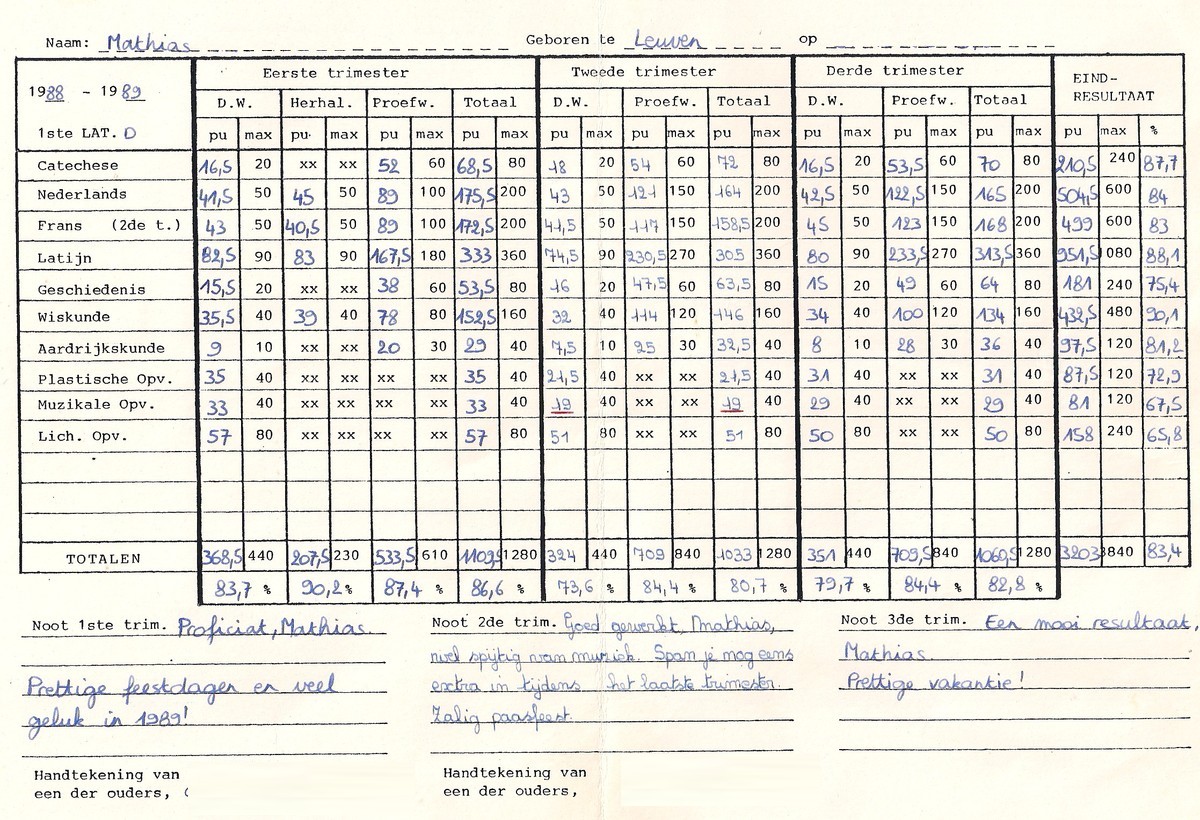 Naam: Mathias Geboren te Leuven op
1988 - 1989 Eerste trimester Tweede trimester Derde trimester EIND-RESULTAAT
D.W. Herhal. Proefw. Totaal D.W. Proefw. Totaal D.W. Proefw. Totaal
1ste LAT. D pu max pu max pu max pu max pu max pu max pu max pu max pu max pu max pu max %
Catechese 16,5 20 xx xx 52 60 68,5 80 18 20 54 60 72 80 16,5 20 53,5 60 70 80 210,5 240 87,7
Nederlands 41,5 50 45 50 89 100 175,5 200 43 50 121 150 164 200 42,5 50 122,5 150 165 200 504,5 600 84
Frans (2de t.) 43 50 40,5 50 89 100 172,5 200 41,5 50 117 150 158,5 200 45 50 123 150 168 200 499 600 83
Latijn 82,5 90 83 90 167,5 180 333 360 74,5 90 230,5 270 305 360 80 90 233,5 270 313,5 360 951,5 1080 88,1
Geschiedenis 15,5 20 xx xx 38 60 53,5 80 16 20 47,5 60 63,5 80 15 20 49 60 64 80 181 240 75,4
Wiskunde 35,5 40 39 40 78 80 152,5 160 32 40 114 120 146 160 34 40 100 120 134 160 432,5 480 90,1
Aardrijkskunde 9 10 xx xx 20 30 29 40 7,5 10 25 30 32,5 40 8 10 28 30 36 40 97,5 120 81,2
Plastische Opv. 35 40 xx xx xx xx 35 40 21,5 40 xx xx 21,5 40 31 40 xx xx 31 40 87,5 120 72,9
Muzikale Opv. 33 40 xx xx xx xx 33 40 19 40 xx xx 19 40 29 40 xx xx 29 40 81 120 67,5
Lich. Opv. 57 80 xx xx xx xx 57 80 51 80 xx xx 51 80 50 80 xx xx 50 80 158 240 65,8
TOTALEN 368,5 440 207,5 230 533,5 610 1109,5 1280 324 440 709 840 1033 1280 351 440 709,5 840 1060,5 1280 3203 3840 83,4
83,7 % 90,2 % 87,4 % 86,6 % 73,6 % 84,4 % 80,7 % 79,7 % 84,4 % 82,8 %
Noot 1ste trim. Proficiat, Mathias.
Prettige feestdagen en veel
geluk in 1989!
Handtekening van
een der ouders,
Noot 2de trim. Goed gewerkt, Mathias,
wel spijtig van muziek. Span je mog eens
extra in tijdens het laatste trimester.
Zalig paasfeest.
Handtekening van
een der ouders,
Noot 3de trim. Een mooi resultaat,
Mathias
Prettige vakantie!